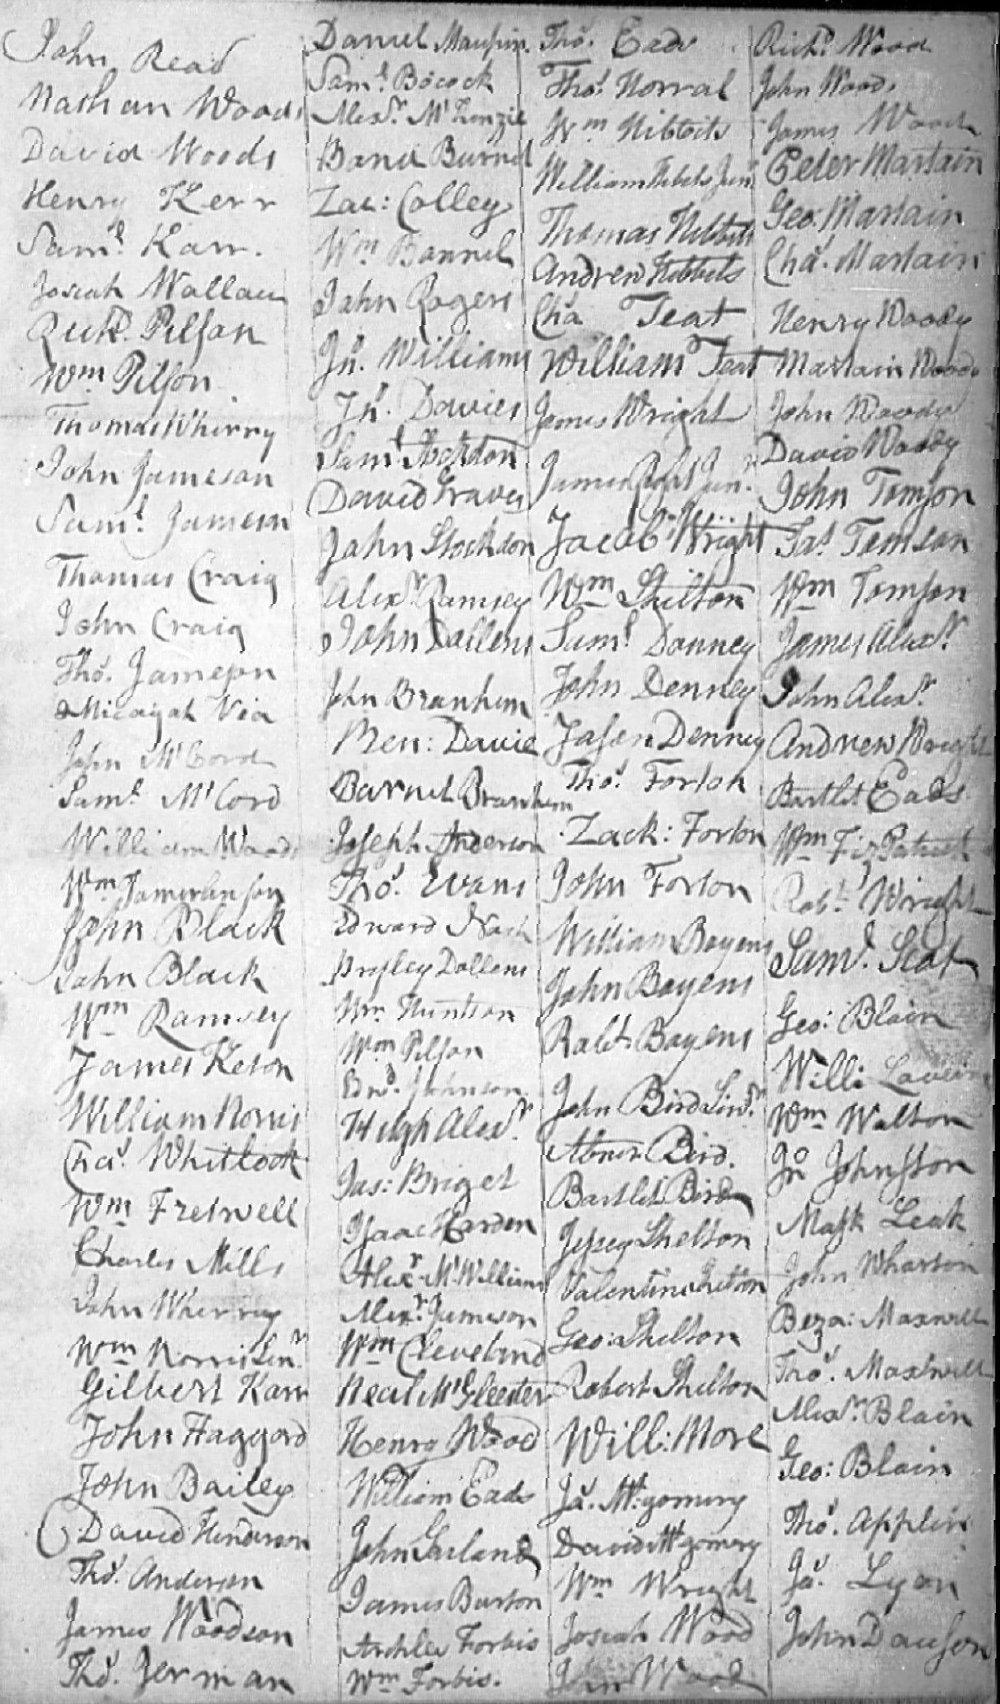 John Read
Nathan Woods
David Woods
Henry Kerr
Saml. Karr.
Josiah Wallace
Richd. Pilson
Wm Pilson
Thomas Wherry
John Jameson
Saml. Jameson
Thomas Craig
John Craig
Thos. Jameson
Micajah Via
John McCord
Saml. McCord
William Woods
Wm
John Black
John Black
Wm Ramsey
James Keton
William Norris
Chas. Whitlock
Wm Fretwell
Charles Mills
John Wherrey
Wm Norris Senr.
Gilbert Karr
John Haggard
John Bailey
David Henderson
Thos. Anderson
James Woodson
Thos. Jerman
Daniel Maupin
Saml. Bocock
Alexr. McKenzie
Band Burnel
Zac: Colley
Wm Bonnel
John Rogers
Jn. Williams
Jn. Davies
Saml. Stockdon
David Graves
John Stockdon
Alexr. Ramsey
John Dollens
John Branham
Ben: Davie
Barnet Branham
Joseph Anderson
Thos. Evans
Edward Nash
Presley Dollens
Wm Huntson
Wm Pilson
Edwd. Johnson
Hugh Alexr.
Jas: Briget
Isaac Harden
Alexr. McWilliams
Alexr. Jameson
Wm Cleveland
Neal McGleester
Henry Wood
William Eads
John Garland
James Burton
Archles Forbis
Wm Forbis.
Thos. Eads
Thos. Norral
Wm Nibbits
William Nibbets Jun
Thomas Nibbets
Andrew Nibbets
Chs Teat
William Teat
James Wright
James Jun.
Jacob Wright
Wm Shilton
Saml. Denney
John Denney
Jason Denney
Thos. Forton
Zack: Forton
John Forton
William Boyens
John Boyens
Robt. Boyens
John Bird Senr.
Abner Bird.
Bartlet Bird
Jessey Shelton
Valentine Shelton
Geo: Shelton
Robert Shelton
Will: More
Ja. Mtgomery
David Mtgomery
Wm Wright
Josiah Wood
John Wood
Richd. Wood
John Woods
James Woods
Peter Martain
Geo. Martain
Chas. Martain
Henry Woody
Martain Woods
John Woody
David Woody
John Tomson
Jas. Tomson
Wm Tomson
James Alexr.
John Alexr.
Andrew Wright
Bartlet Eads
Wm Fizpatrick
Robt. Wright
Saml. Teat
Geo: Blain
Willi
Wm Walton
Jno Johnston
Mask Leak
John Wharton
Beza: Maxwell
Thos. Maxwell
Alexr. Blain
Geo: Blain
Thos. Applin
Ja. Lyon
John Dawson